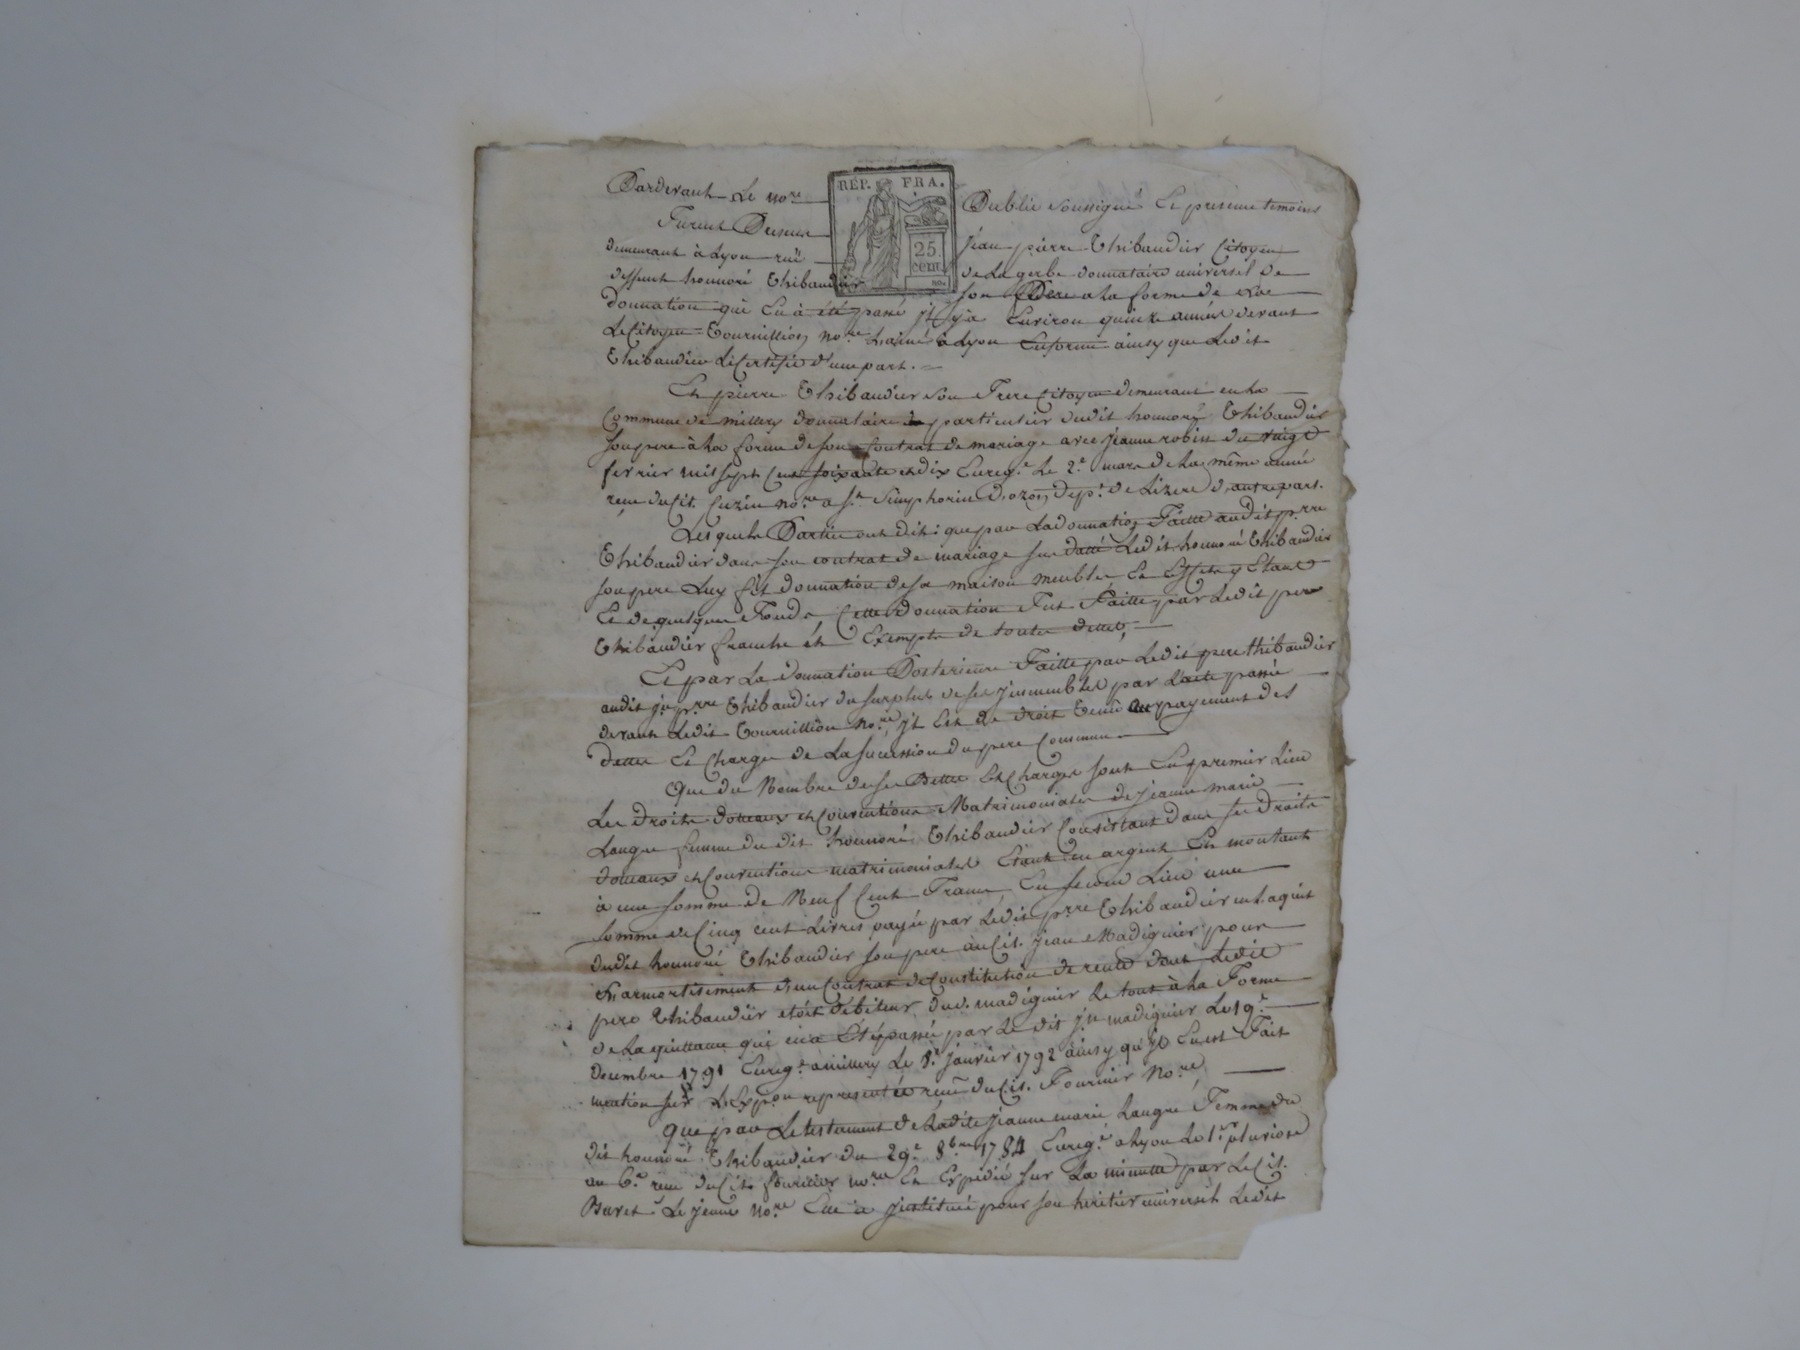 Pardevant Le no.re Public soussigné Et présence temoins
RÉP. FRA.
25 cent.
Furent Présens jean pierre Thibaudier Citoyen
demeurant à Lyon ruë de La gerbe donnataire universel de
deffunt honnoré Thibaudier son Père a la forme de
donnation qui En à été passé jl y a Environ quinze années devant
Le Citoyen Tournillion no.re à Lyon ainsy que Ledit
Thibaudier Le Certifie d'une part.
Et pierre Thibaudier son Frere Citoyen demeurant en La
Commune de millery donnataire particulier dudit honnoré Thibaudier
son pere à La forme de son Contrat de mariage avec jeanne robin du vingt
fevrier mil sept Cent soixante et dix Enreg.é Le 2.e mars de La même année
reçu du Cit. no.re a S.t Simphorien D'ozon, dep.t de Lizere d'autre part.
Lesquels Parties ont dit: que par La donnation Faitte audit p.rre
Thibaudier dans son contrat de mariage sus datté Ledit honnoré Thibaudier
son pere Luy fit donnation de sa maison meubles Et Effets y Etant
Et de quelques Fonds, Cette donnation Fut Faitte par Ledit pere
Thibaudier franche et Exempte de toutes dettes,
Et par La donnation Posterieure Faitte par Ledit pere thibaudier
audit j.n p.rre Thibaudier du surplus de ses jmmeubles par Lacte passé
devant Ledit Tournillion no.re, jl Est de droit tenu au payement des
dettes Et Charges de La sucession du pere Commun
Que du Nombre de ses Dettes Et Charges sont En premier Lieu
Les droits dotaux et Conventions Matrimoniales de jeanne marie
Laugre femme du dit honnoré Thibaudier Consistant dans ses droits
dotaux et Conventions matrimoniales Etant en argent Et montant
à une somme de Neuf Cent Francs En second Lieu une
somme de Cinq cent Livres payée par Ledit p.rre Thibaudier en Laquit
dudit honnoré Thibaudier son pere au Cit. jean Madignier pour
L'amortissement d'un Contrat de Constitution de rente dont Ledit
pere Thibaudier etoit Débiteur dud. madignier Le tout à La Forme
de La quittance qui en a Eté passée par Le dit j.n madignier Le 19.e
decembre 1791 Enreg.é a millery Le 8.e janvier 1792 ainsy qu'jl En est Fait
mention sur LExp.on representée reçue du Cit. Fournier no.re
Que par Le testament de Ladite jeanne marie Laugre Femme du
dit honnoré Thibaudier du 29.e 8bre 1784 Enreg.é a Lyon Le 1.er pluviose
an 6.e reçu du Cit. fournier no.re Et Expedié sur La minutte par Le Cit.
Buret Le jeune no.re Elle a jnstitué pour son heritier universel Ledit